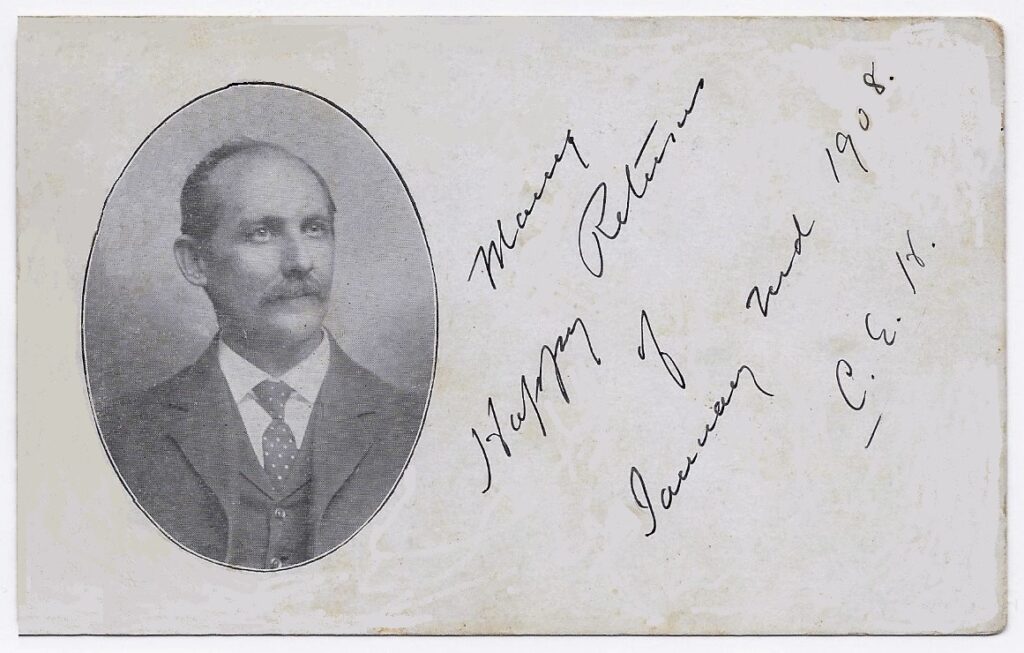 Many
Happy Returns
of
January 2nd 1908.
C. E. H.